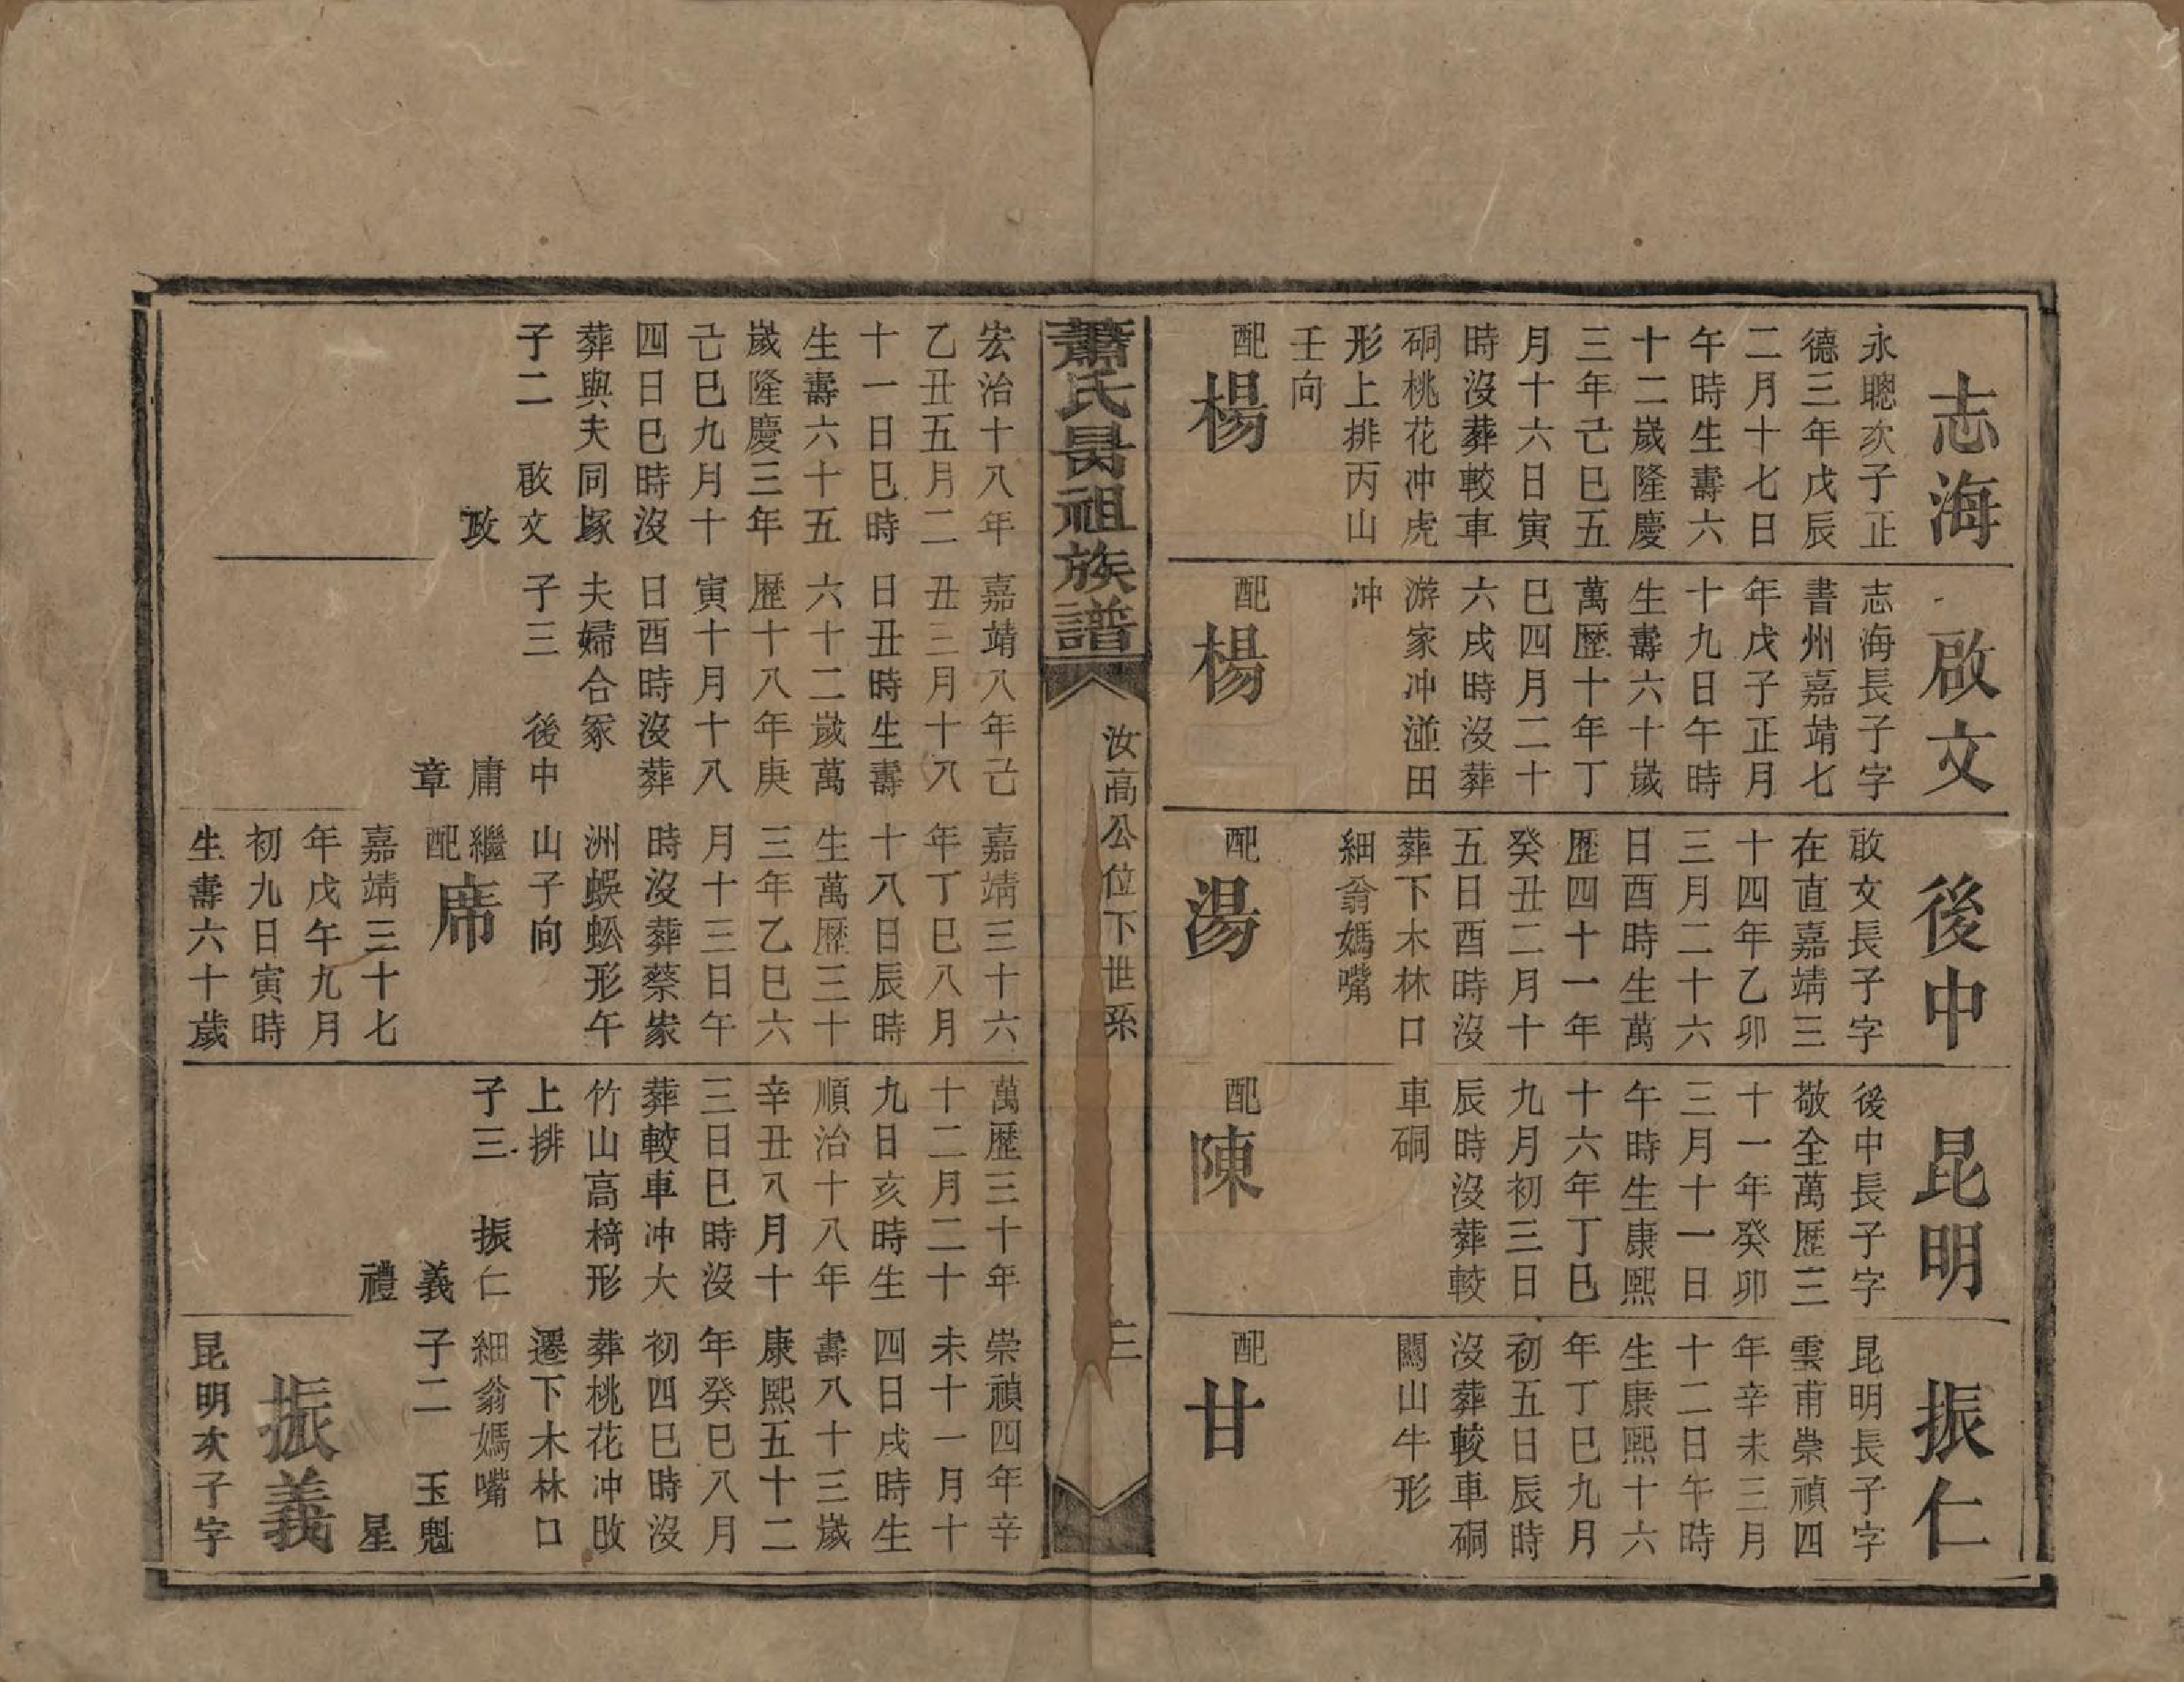 志海
永聰次子正
德三年戊辰
二月十七日
午時生壽六
十二嵗隆慶
三年己巳五
月十六日寅
時沒葬較車
硐桃花冲虎
形上排丙山
壬向
配
楊
啟文
志海長子字
書州嘉靖七
年戊子正月
十九日午時
生壽六十嵗
萬歷十年丁
巳四月二十
六戌時沒葬
游家冲湴田
冲
配
楊
後中
啟文長子字
在直嘉靖三
十四年乙卯
三月二十六
日酉時生萬
歷四十一年
癸丑二月十
五日酉時沒
葬下木林口
細翁媽嘴
配
湯
昆明
後中長子字
敬全萬歷三
十一年癸卯
三月十一日
午時生康熙
十六年丁巳
九月初三日
辰時沒葬較
車硐
配
陳
振仁
昆明長子字
雲甫崇禎四
年辛未三月
十二日午時
生康熙十六
年丁巳九月
初五日辰時
沒葬較車硐
關山牛形
配
甘
蕭氏昺祖族譜
汝高公位下世系
三
宏治十八年
乙丑五月二
十一日巳時
生壽六十五
嵗隆慶三年
己巳九月十
四日巳時沒
葬與夫同塚
子二 啟文
政
嘉靖八年己
丑三月十八
日丑時生壽
六十二嵗萬
歷十八年庚
寅十月十八
日酉時沒葬
夫婦合冢
子三 後中
庸
章
嘉靖三十六
年丁巳八月
十八日辰時
生萬歷三十
三年乙巳六
月十三日午
時沒葬蔡家
洲蜈蚣形午
山子向
繼配
席
嘉靖三十七
年戊午九月
初九日寅時
生壽六十歲
萬歷三十年
十二月二十
九日亥時生
順治十八年
辛丑八月十
三日巳時沒
葬較車冲大
竹山高椅形
上排
子三 振仁
義
禮
崇禎四年辛
未十一月十
四日戌時生
壽八十三嵗
康熙五十二
年癸巳八月
初四巳時沒
葬桃花冲改
遷下木林口
細翁媽嘴
子二 玉魁
星
振義
昆明次子字